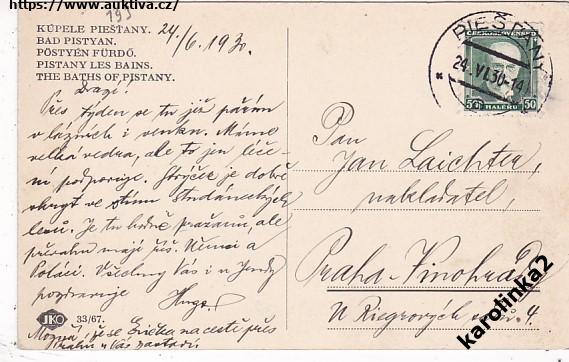 https://www.auktiva.cz/
193
KÚPELE PIEŠŤANY.
BAD PISTYAN.
PÖSTYÉN FÜRDŐ.
PISTANY LES BAINS.
THE BATHS OF PISTANY.
24./6. 1930.
Drazí!
Přes týden se tu již pářím
v lázních i venku. Máme
velká vedra, ale to jen léče-
ní podporuje. Strýček je dobře
ukryt ve stínu
lesů. Je tu hodně pražanů, ale
převahu mají Němci a
Poláci. Všechny Vás i u Jendy
pozdravuje
Hugo
Možná, že se cestě přes
Prahu u Vás zastaví.
JKO 33/67.
PIEŠŤANY
24. VI. 30-14
ČESKOSLOVENSKO
50 HALÉŘŮ 50
Pan
Jan Laichter,
nakladatel,
Praha-Vinohrady
U Riegrových sadů 4.
karolinka2